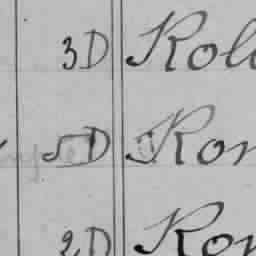 3D Rol
5D Ron
2D Ron